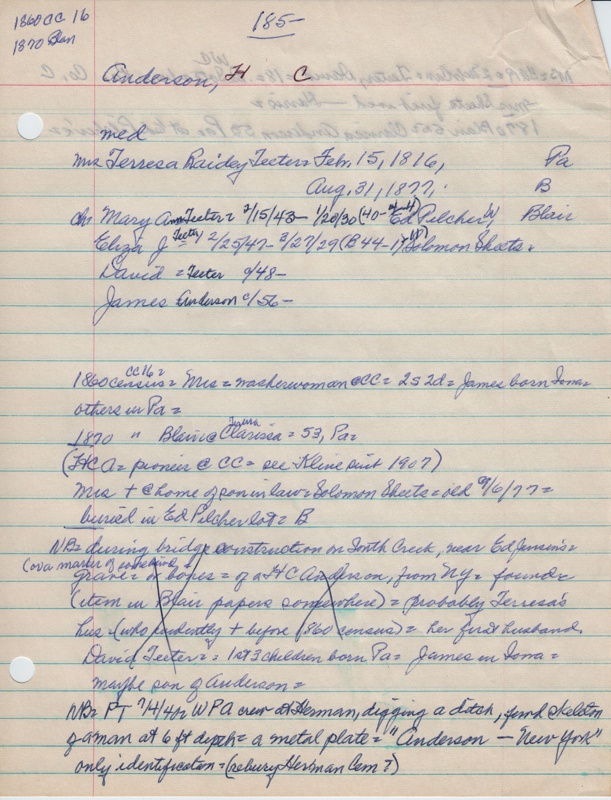 1860 CC 16
1870 Blan
185-
Anderson, H C
med
Mrs Terresa Raidey Teeter = Feb. 15, 1816, Pa
Aug. 31, 1877, B
ch Mary Ann Teeter = 2/15/43 - 1/20/30 (40- Ed Pilcher, W Blair
Eliza J Teeter 2/25/47 - 3/27/29 (B 44-1) Solomon Sheets =
David = Teeter c/48-
James Anderson c/56-
1860 census CC 16 = Mrs = washerwoman @ CC = 252d = James born Iowa =
others in Pa =
1870 " Blair @ Clarissa = 53, Pa =
(HCA = pioneer @ CC = see Kline list 1907)
Mrs + @ home of son in law = Solomon Sheets = old 9/6/77 =
buried in Ed Pilcher lot = B
NB = during bridge construction on South Creek, near Ed Jensen's =
(on a marker of some kind)
grave = or bones = of a HC Anderson, from NY = found =
(item in Blair papers somewhere) = probably Terresa's
hus (who evidently + before 1860 census) = her first husband
David Teeter = 1st 3 children born Pa = James in Iowa =
maybe son of Anderson =
NB = PT 7/4/40 = WPA crew at Herman, digging a ditch, found skeleton
of a man at 6 ft depth = a metal plate = "Anderson - New York"
only identification = (rebury Herman Cem ?)